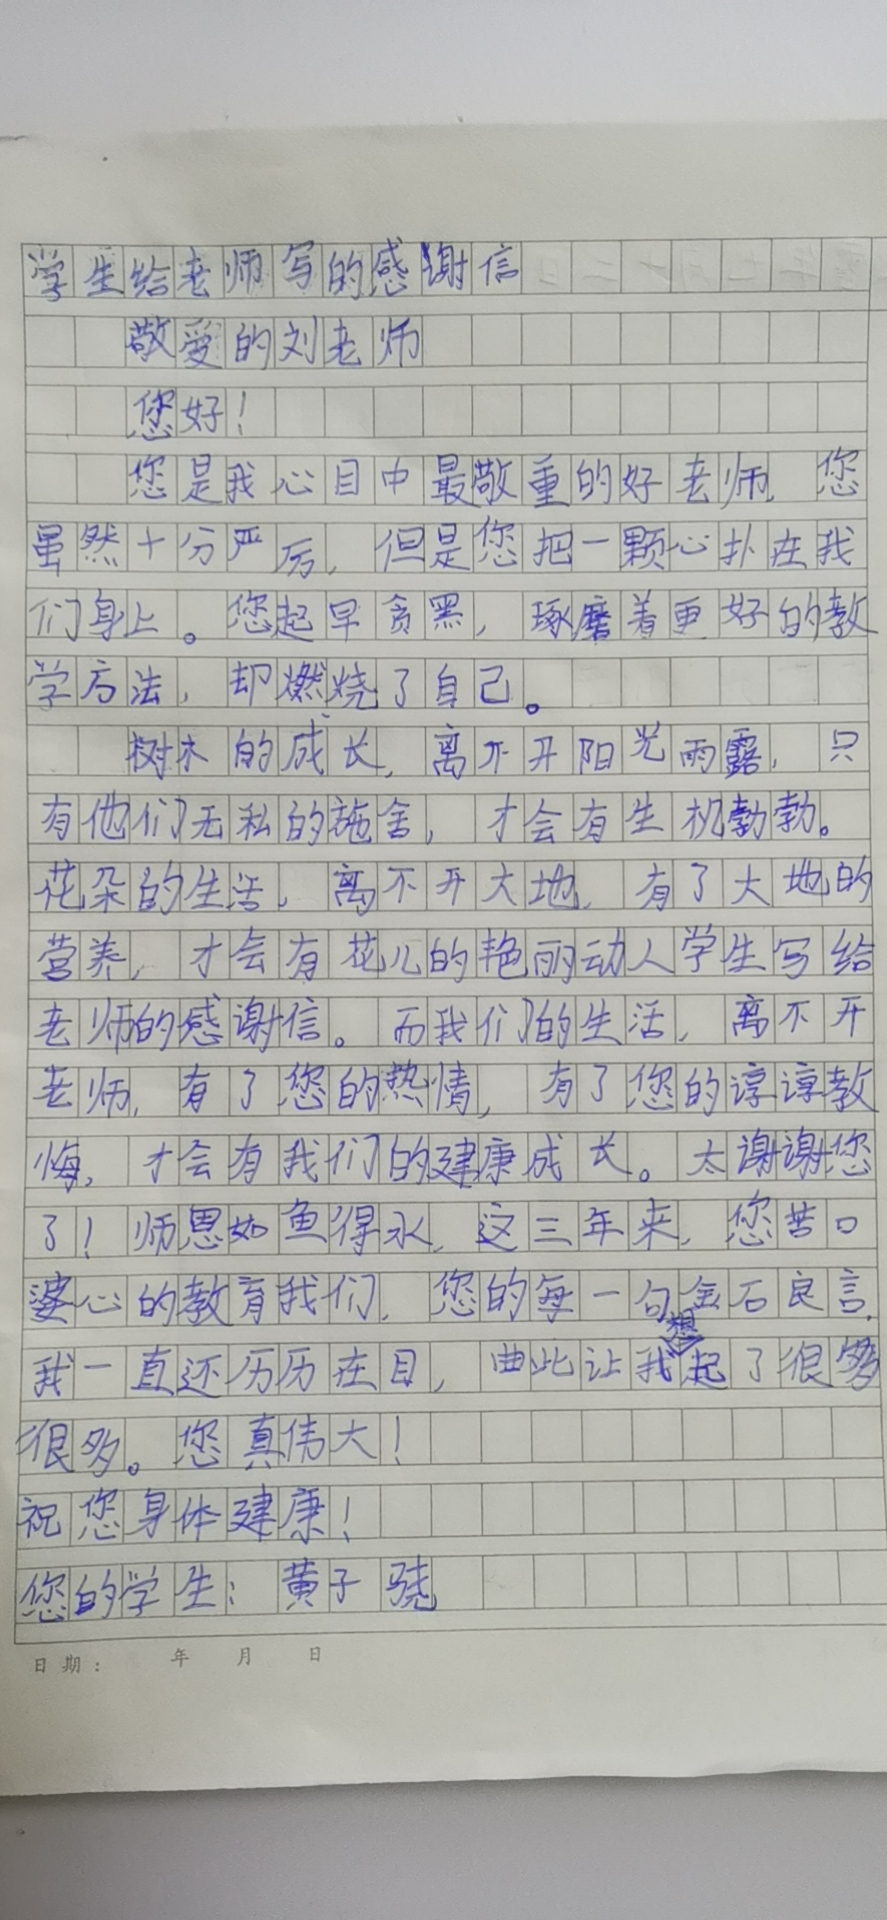 学生给老师写的感谢信
敬爱的刘老师
您好！
您是我心目中最敬重的好老师，您
虽然十分严厉，但是您把一颗心扑在我
们身上。您起早贪黑，琢磨着更好的教
学方法，却燃烧了自己。
树木的成长，离不开阳光雨露，只
有他们无私的施舍，才会有生机勃勃。
花朵的生活，离不开大地，有了大地的
营养，才会有花儿的艳丽动人学生写给
老师的感谢信。而我们的生活，离不开
老师，有了您的热情，有了您的谆谆教
悔，才会有我们的建康成长。太谢谢您
了！师恩如鱼得水，这三年来，您苦口
婆心的教育我们，您的每一句金石良言，
我一直还历历在目，曲此让我想起了很多
很多。您真伟大！
祝您身体建康！
您的学生：黄子骁
日期： 年 月 日